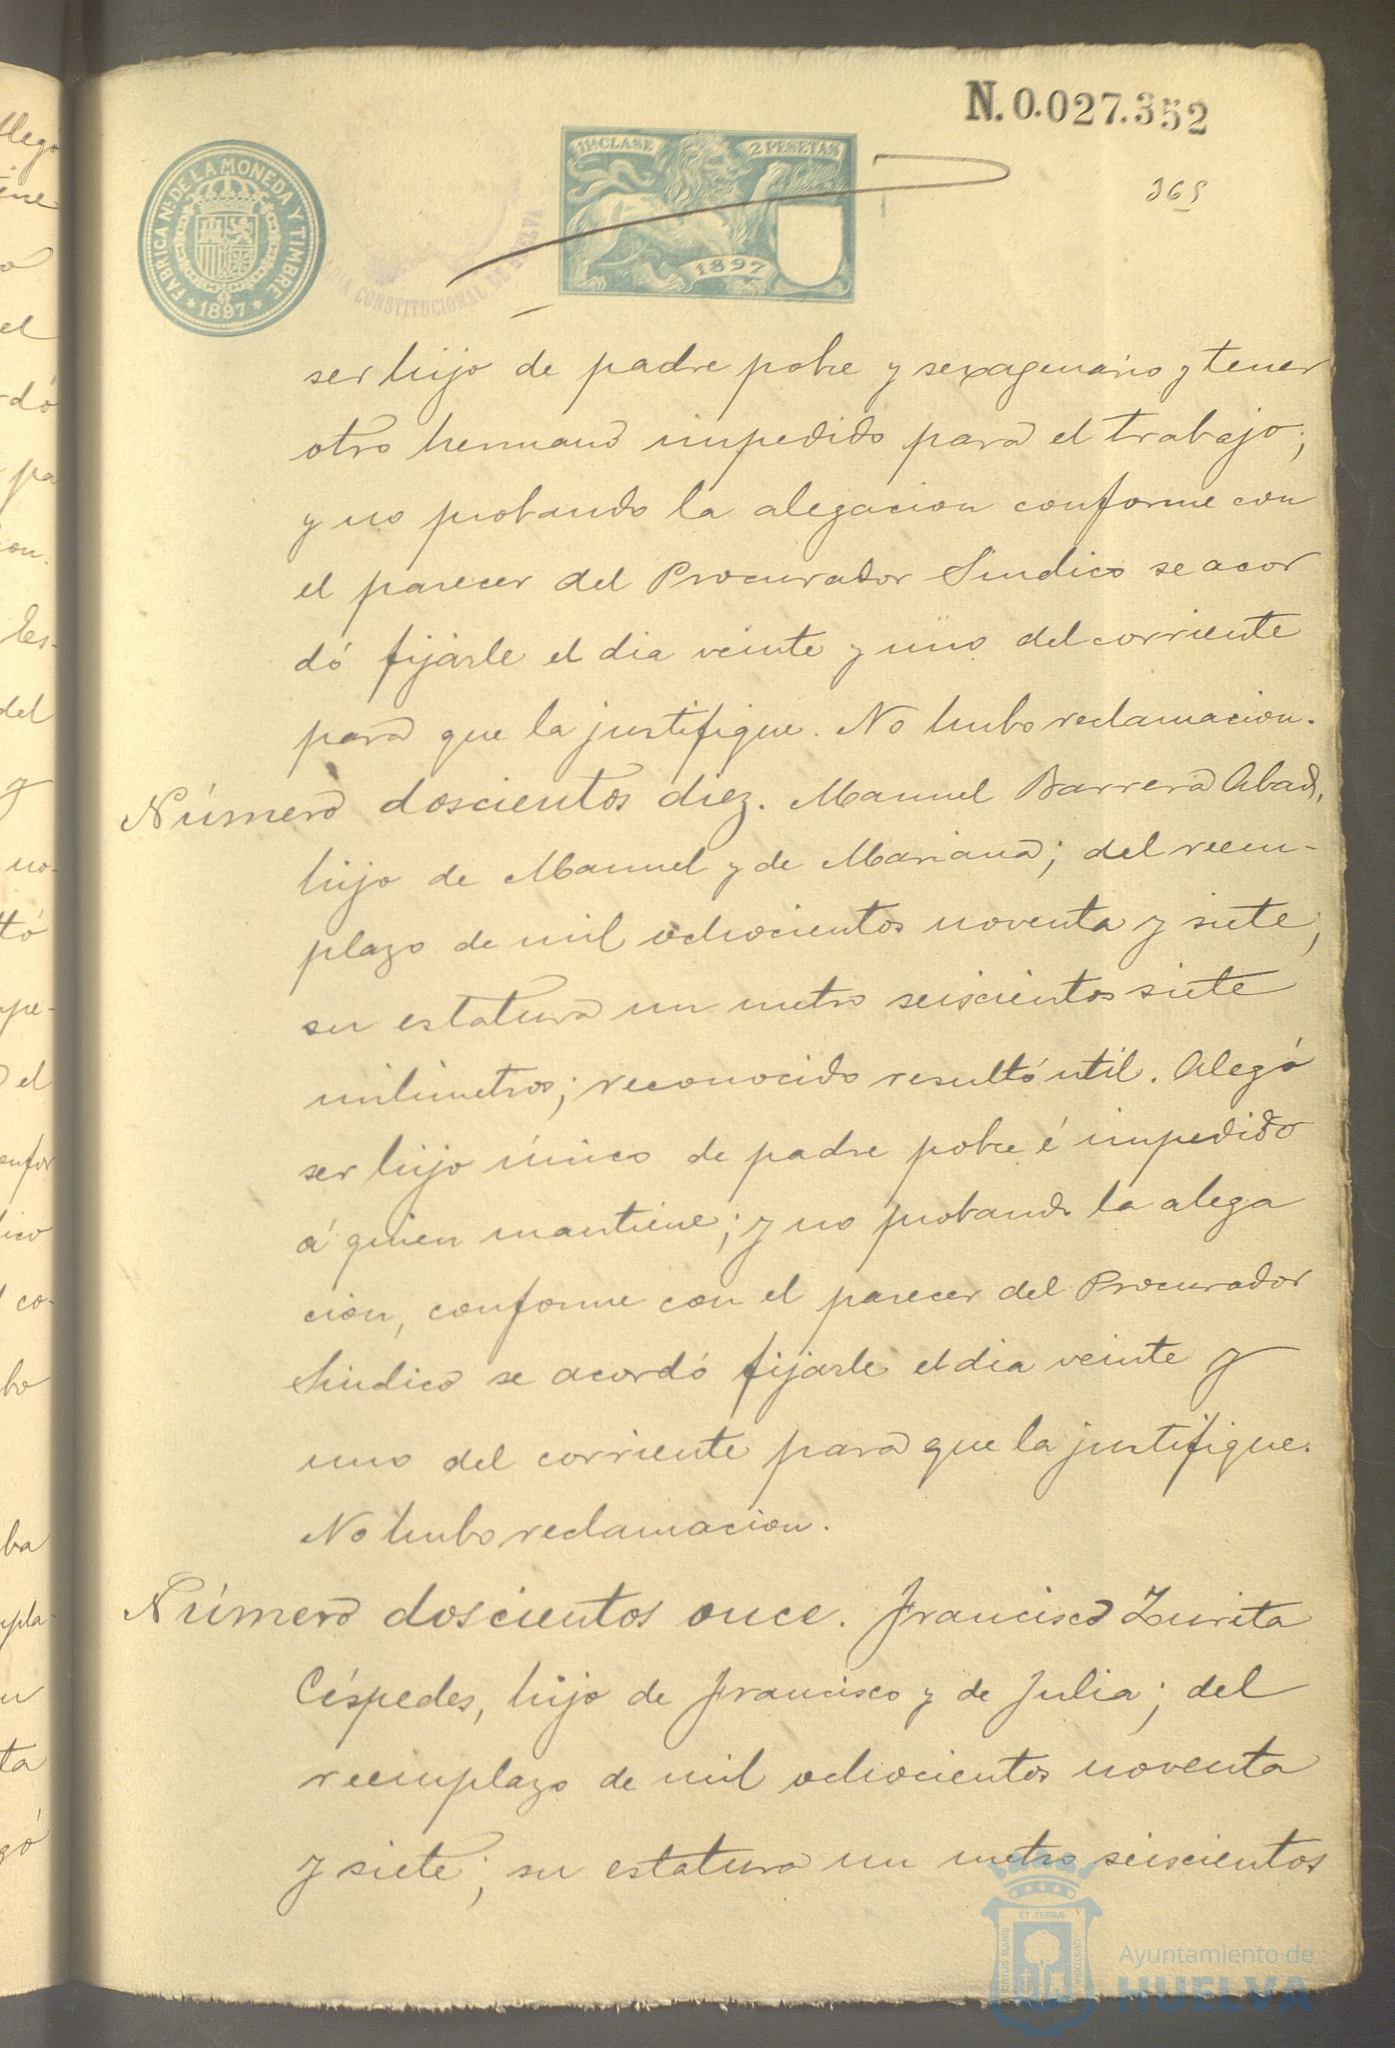 N. 0.027.352
FABRICA NL. DE LA MONEDA Y TIMBRE
* 1897 *
11ª CLASE
2 PESETAS
1897
CONSTITUCIONAL DE HUELVA
365
ser hijo de padre pobre y sexagenario y tener
otro hermano impedido para el trabajo;
y no probando la alegacion conforme con
el parecer del Procurador Sindico se acor
dó fijarle el dia veinte y uno del corriente
para que la justifique. No hubo reclamacion.
Número doscientos diez. Manuel Barrera Abad,
hijo de Manuel y de Mariana; del reem-
plazo de mil ochocientos noventa y siete;
su estatura un metro seiscientos siete
milimetros; reconocido resultó util. Alegó
ser hijo único de padre pobre é impedido
á quien mantiene; y no probando la alega
cion, conforme con el parecer del Procurador
Sindico se acordó fijarle el dia veinte y
uno del corriente para que la justifique.
No hubo reclamacion.
Número doscientos once. Francisco Zurita
Céspedes, hijo de Francisco y de Julia; del
reemplazo de mil ochocientos noventa
y siete; su estatura un metro seiscientos
Ayuntamiento de
HUELVA